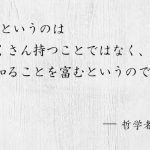 というのは
くさん持つことではなく、
知ることを富むというので
― 哲学者